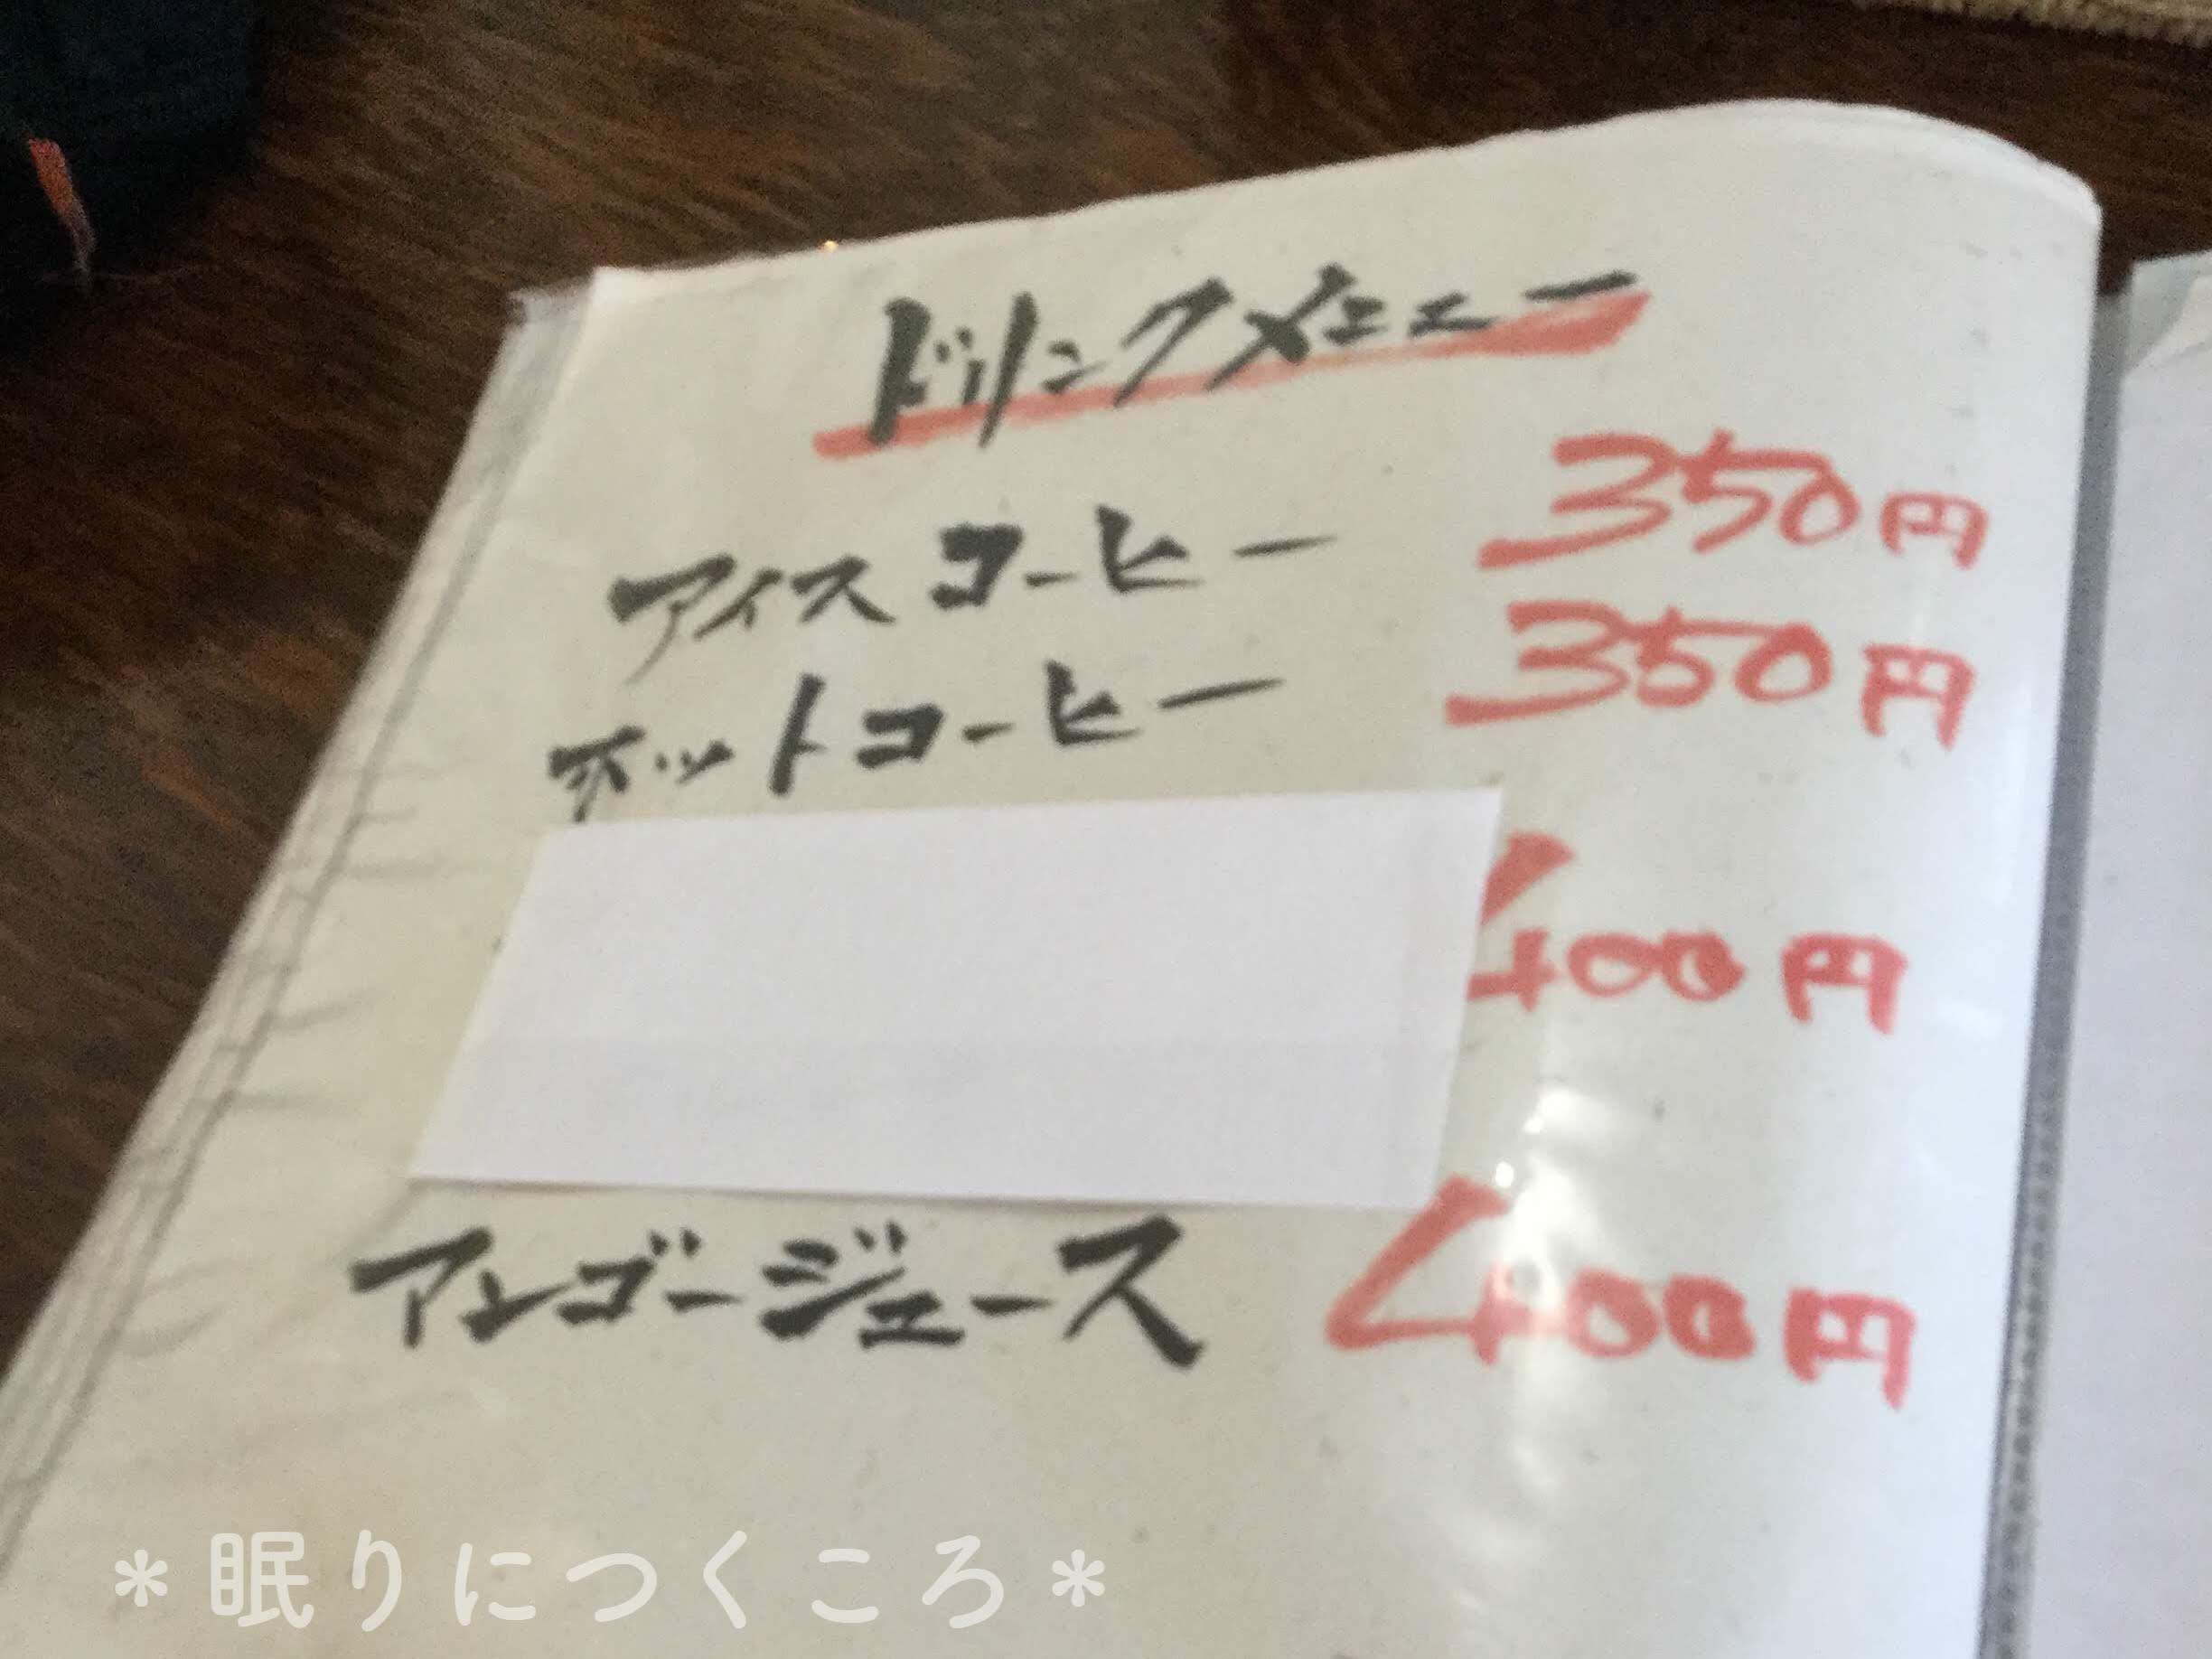 ドリンクメニュー
アイスコーヒー 350円
ホットコーヒー 350円
400円
マンゴージュース 400円
*眠りにつくころ*